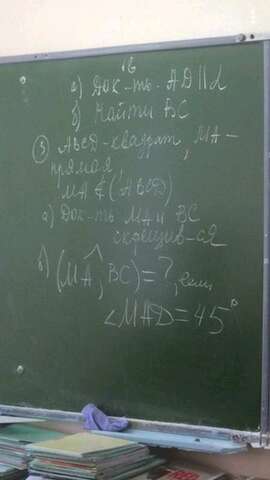 а) Док-ть. AD || α
б) Найти BC
③ ABCD-квадрат, MA-
прямая
MA ∉ (ABCD)
а) Док-ть MA и BC
скрещив-ся
б) (MA, BC) = ?, если
∠MAD = 45°